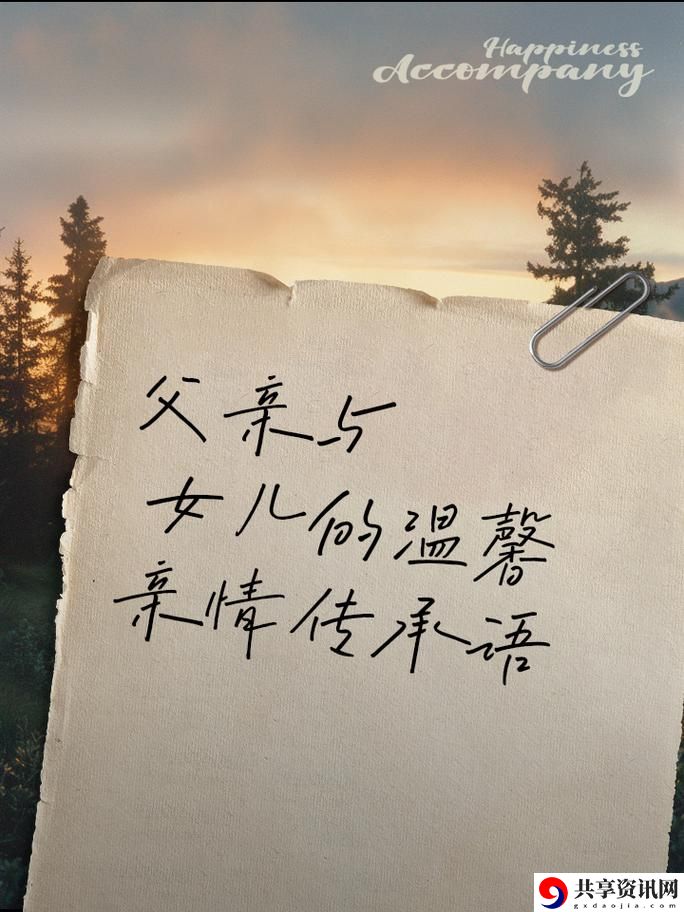 Happiness
Accompany
父亲与
女儿的温馨
亲情传承语
共享资讯网
gxdaojia.com